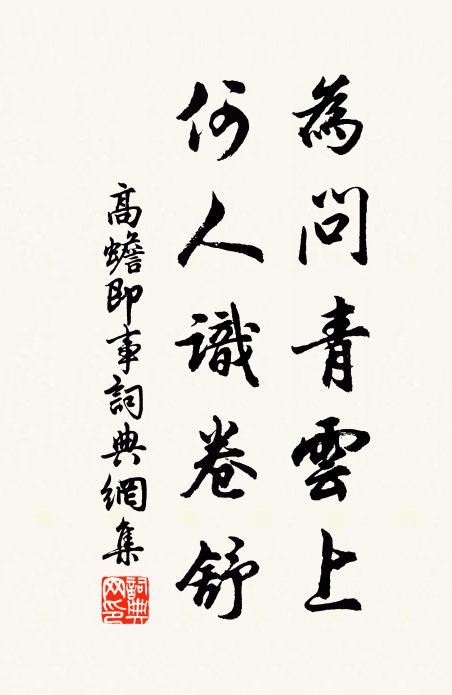 為問青雲上
何人識卷舒
高蟾即事詞典網集
詞典網印